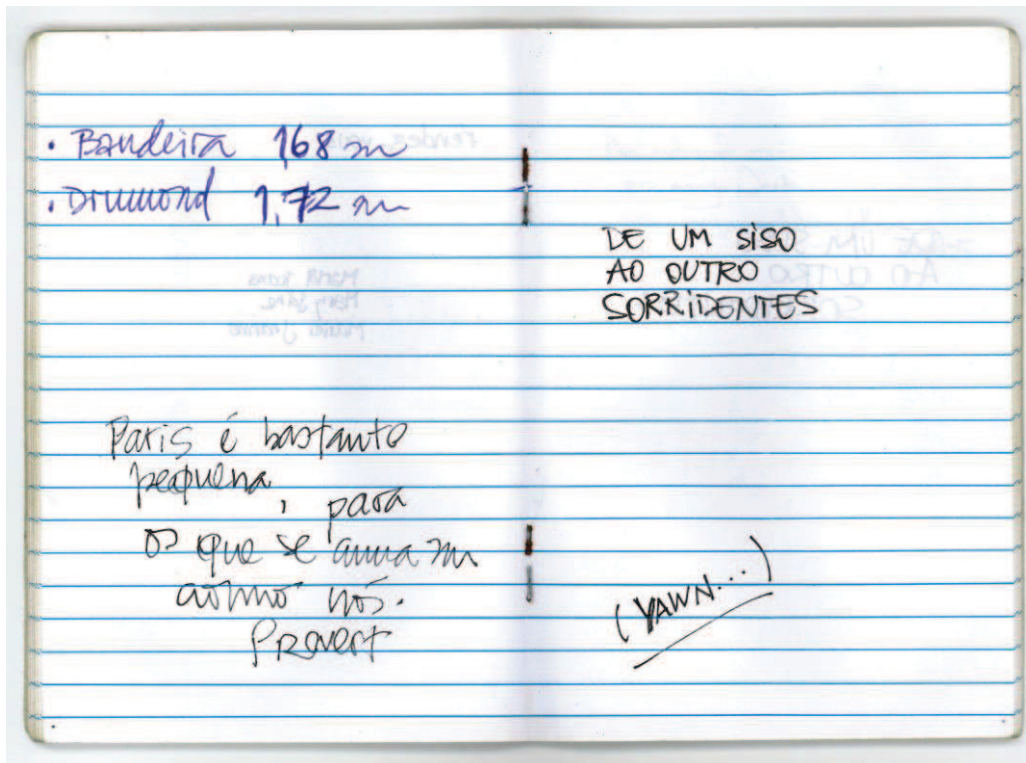 • Bandeira 1,68 m
• Drumond 1,72 m
Paris é bastante
pequena, para
os que se amam
como nós.
Prévert
DE UM SISO
AO OUTRO
SORRIDENTES
(YAWN...)